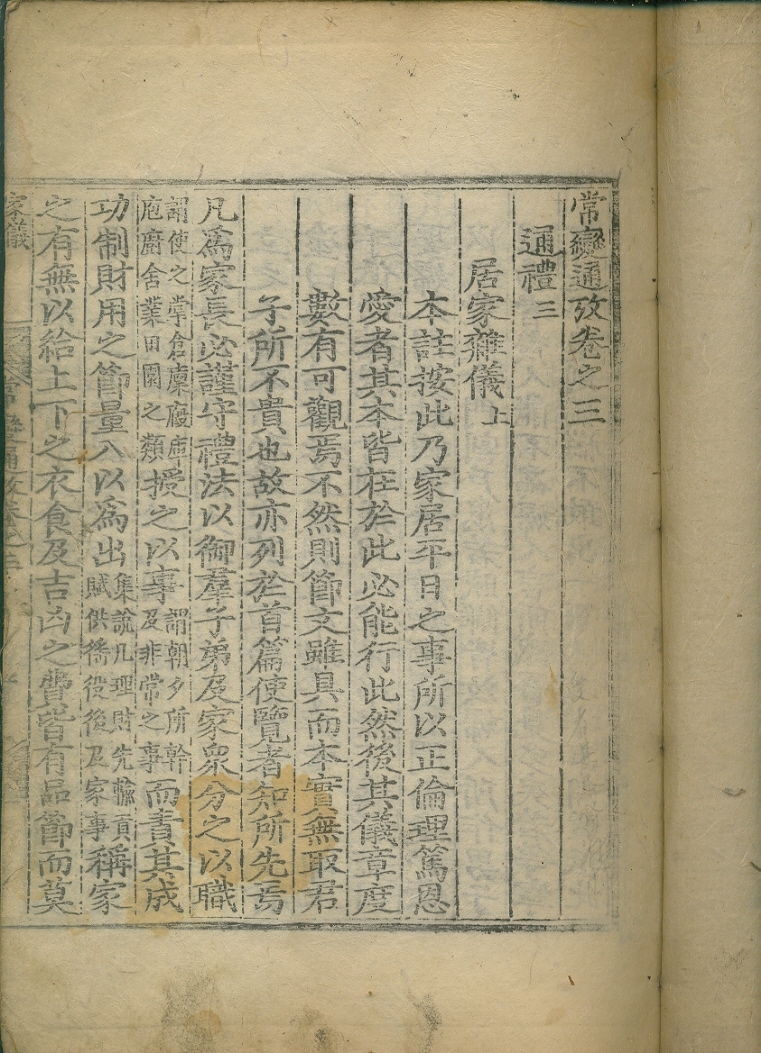 常變通攷卷之三
通禮三
居家雜儀上
本註按此乃家居平日之事所以正倫理篤恩
愛者其本皆在於此必能行此然後其儀章度
數有可觀焉不然則節文雖具而本實無取君
子所不貴也故亦列於首篇使覽者知所先焉
凡爲家長必謹守禮法以御羣子弟及家衆分之以職
謂使之掌倉廩廐庫
庖廚舍業田園之類
授之以事
謂朝夕所幹
及非常之事
而責其成
功制財用之節量入以爲出
集說凡理財先輸貢
賦供徭役後及家事
稱家
之有無以給上下之衣食及吉凶之費皆有品節而莫
家儀
常變通攷卷之三